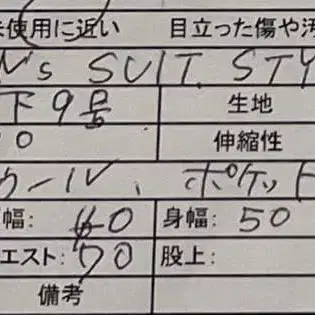 未使用に近い 目立った傷や汚
N's SUIT STY
下9号 生地
00 伸縮性
ウール、ポケット
幅: 40 身幅: 50
エスト: 70 股上:
備考